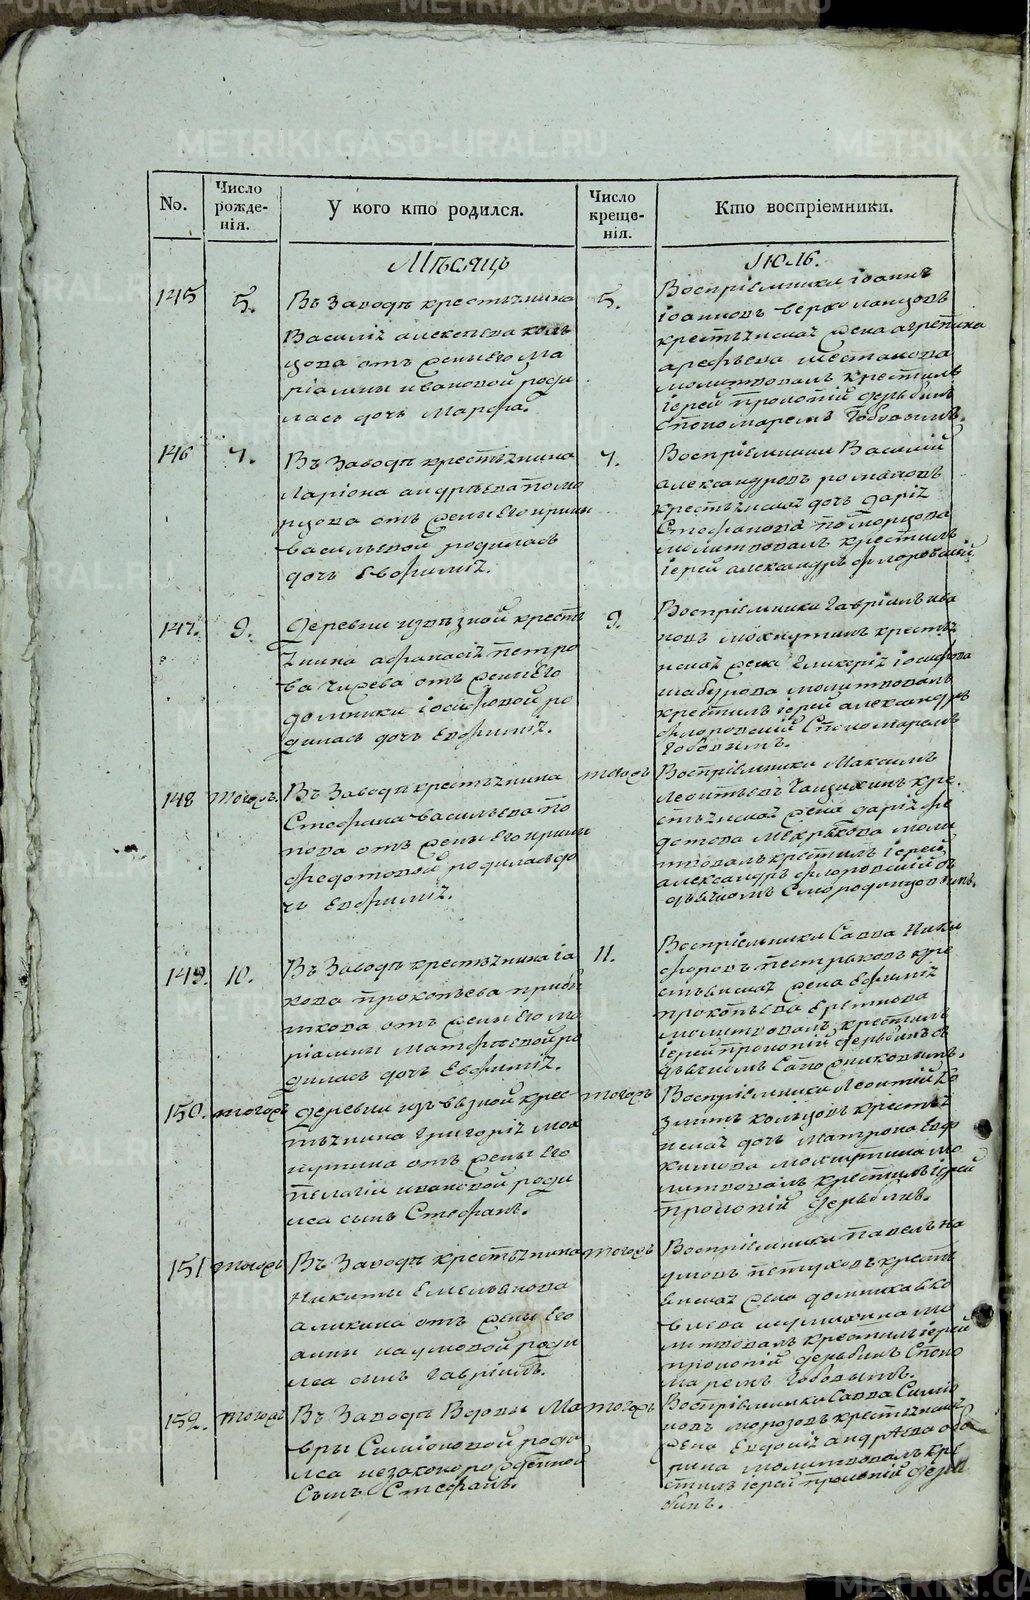 No.
Число рожде-нія.
У кого кто родился.
Число креще-нія.
Кто воспріемники.
Мѣсяць
Іюль.
145
5.
Въ Заводѣ крестьянина
Василія алексѣева коль
цова отъ жены его ма
ріамны ивановой роди
лась дочь Марѳа.
5.
Воспріемники іоаннъ
іоанновъ верхоланцовъ
крестьянская жена агрепина
арефьева шестакова
молитвовалъ крестилъ
іерей прокопій дерябинъ
Спономаремъ
146
7.
Въ Заводѣ крестьянина
Ларіона андрѣева помо
рцова отъ жены его ирины
васильевой родилась
дочь Евфимія.
7.
Воспріемники Василій
александровъ романовъ
крестьянская дочь дарія
Стефанова поморцова
молитвовалъ крестилъ
іерей александръ флоровскій
147.
9.
Деревни извѣзной кресть
янина афанасія петро
ва чирева отъ жены его
домники іосифовой ро
дилась дочь Евфимія.
9.
Воспріемники Гавріилъ ива
новъ мокрушинъ кресть
янская жена Гликерія іосифова
шабурова молитвовалъ
крестилъ іерей александръ
флоровскій Спономаремъ
148
тогожъ.
Въ Заводѣ крестьянина
Стефана васильева по
пова отъ жены его ирины
федотовой родилась до
чь Евфимія.
тогожъ
Воспріемники Максимъ
Леонтьевъ кре-
стьянская жена дарія фе
дотова молит
твовалъ крестилъ іерей
александръ флоровскій съ
дьячкомъ Смородинцовымъ.
149.
10.
Въ Заводѣ крестьянина іа
кова прокопьева приби
ткова отъ жены его ма
ріамны матфеевой ро
дилась дочь Евфимія.
11.
Воспріемники Савва Ники
форовъ пестряковъ кре
стьянская жена Евфимія
прокопьева Еремпова
молитвовалъ крестилъ
іерей прокопій дерябинъ съ
дьячкомъ Сапожниковымъ.
150.
тогожъ
Деревни извѣзной крес-
тьянина Григорія мок
рушина отъ жены его
пелагіи ивановой роди
лса сынъ Стефанъ.
тогожъ
Воспріемники Леонтій Ко
зминъ кольцовъ крестья
нская дочь Матрона Евф
кимова мокрушина мо
литвовалъ крестилъ іерей
прокопій дерябинъ.
151
тогожъ
Въ Заводѣ крестьянина
Никиты Емельянова
аликина отъ жены его
анны наумовой роди
лса сынъ Гавріилъ.
тогожъ
Воспріемники павелъ на
умовъ петуховъ кресть
янская жена домника яко
влева мо
литвовалъ крестилъ іерей
прокопій дерябинъ Споно
маремъ
152.
тогожъ
Въ Заводѣ Вдовы Ма
вры Симіоновой роди
лса незаконорожденной
Сынъ Стефанъ.
тогожъ
Воспріемники Савва Симіо
новъ морозовъ крестьянская
жена Евдокія андрѣева
молитвовалъ кре
стилъ іерей прокопій деря
бинъ.
METRIKI.GASO-URAL.RU